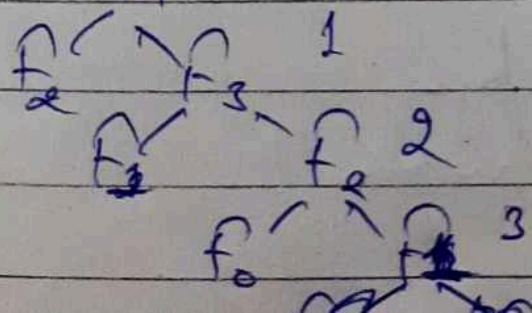 f₂ f₃ 1
f₁ f₂ 2
f₀ f₁ 3